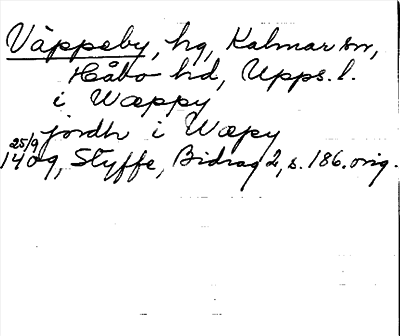 Väppeby, hg, Kalmar sn,
Håbo hd, Upps. l.
i Wæppy
jordh i Wæpy
25/9 1409, Styffe, Bidrag 2, s. 186. orig.